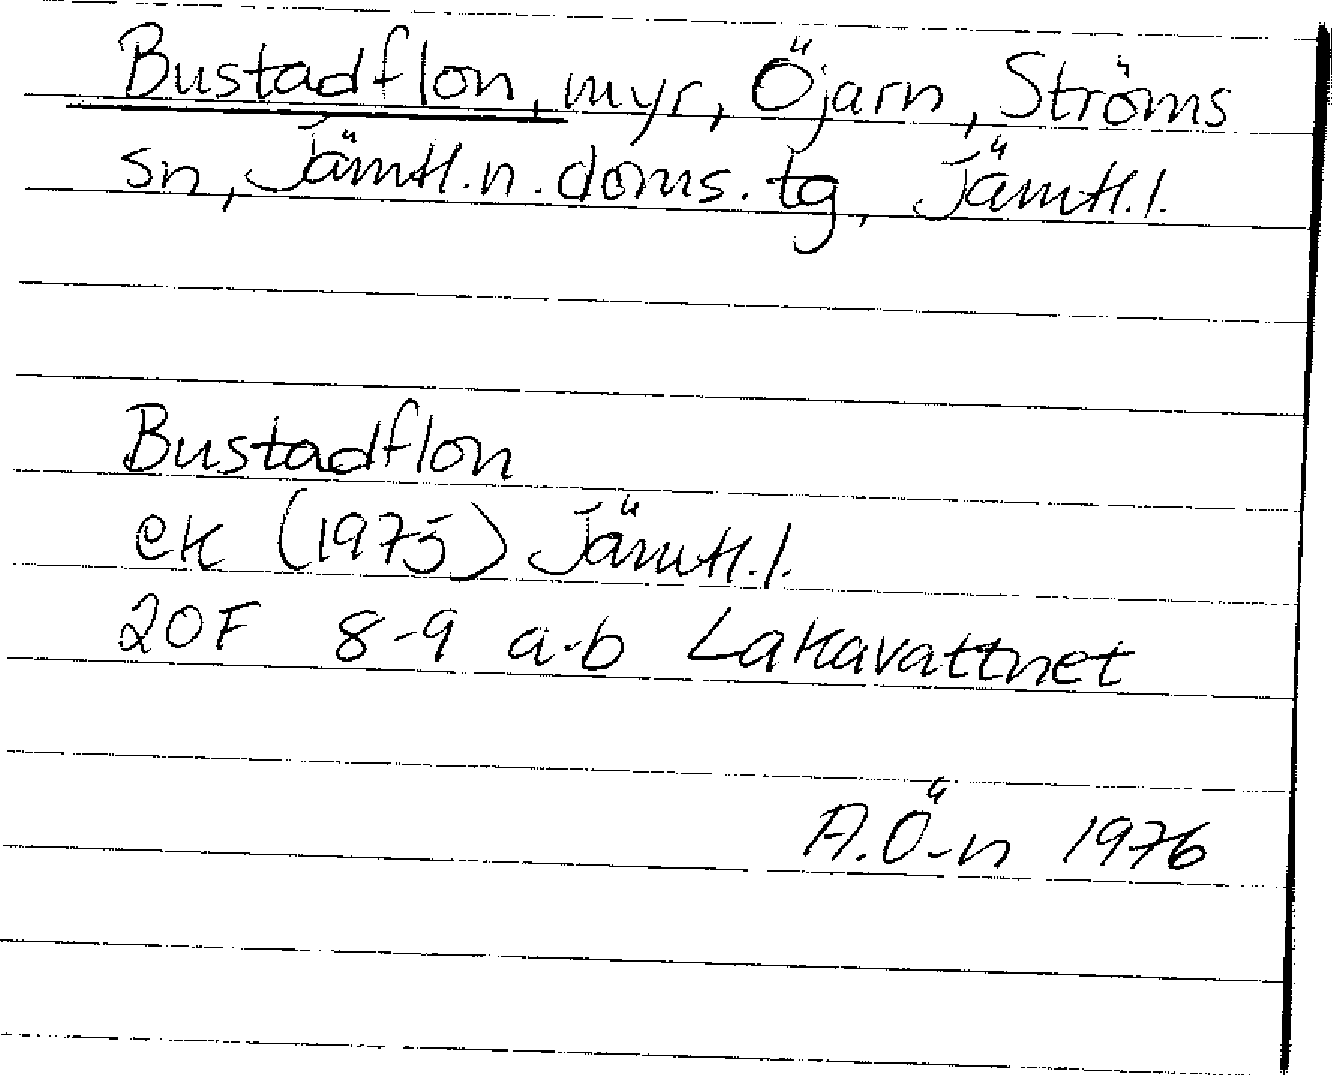 Bustadflon, myr, Öjarn, Ströms
sn, Jämtl.n.doms.tg, Jämtl.l.
Bustadflon
ek (1975) Jämtl.l.
20F 8-9 a-b Lakavattnet
A.Ö-n 1976